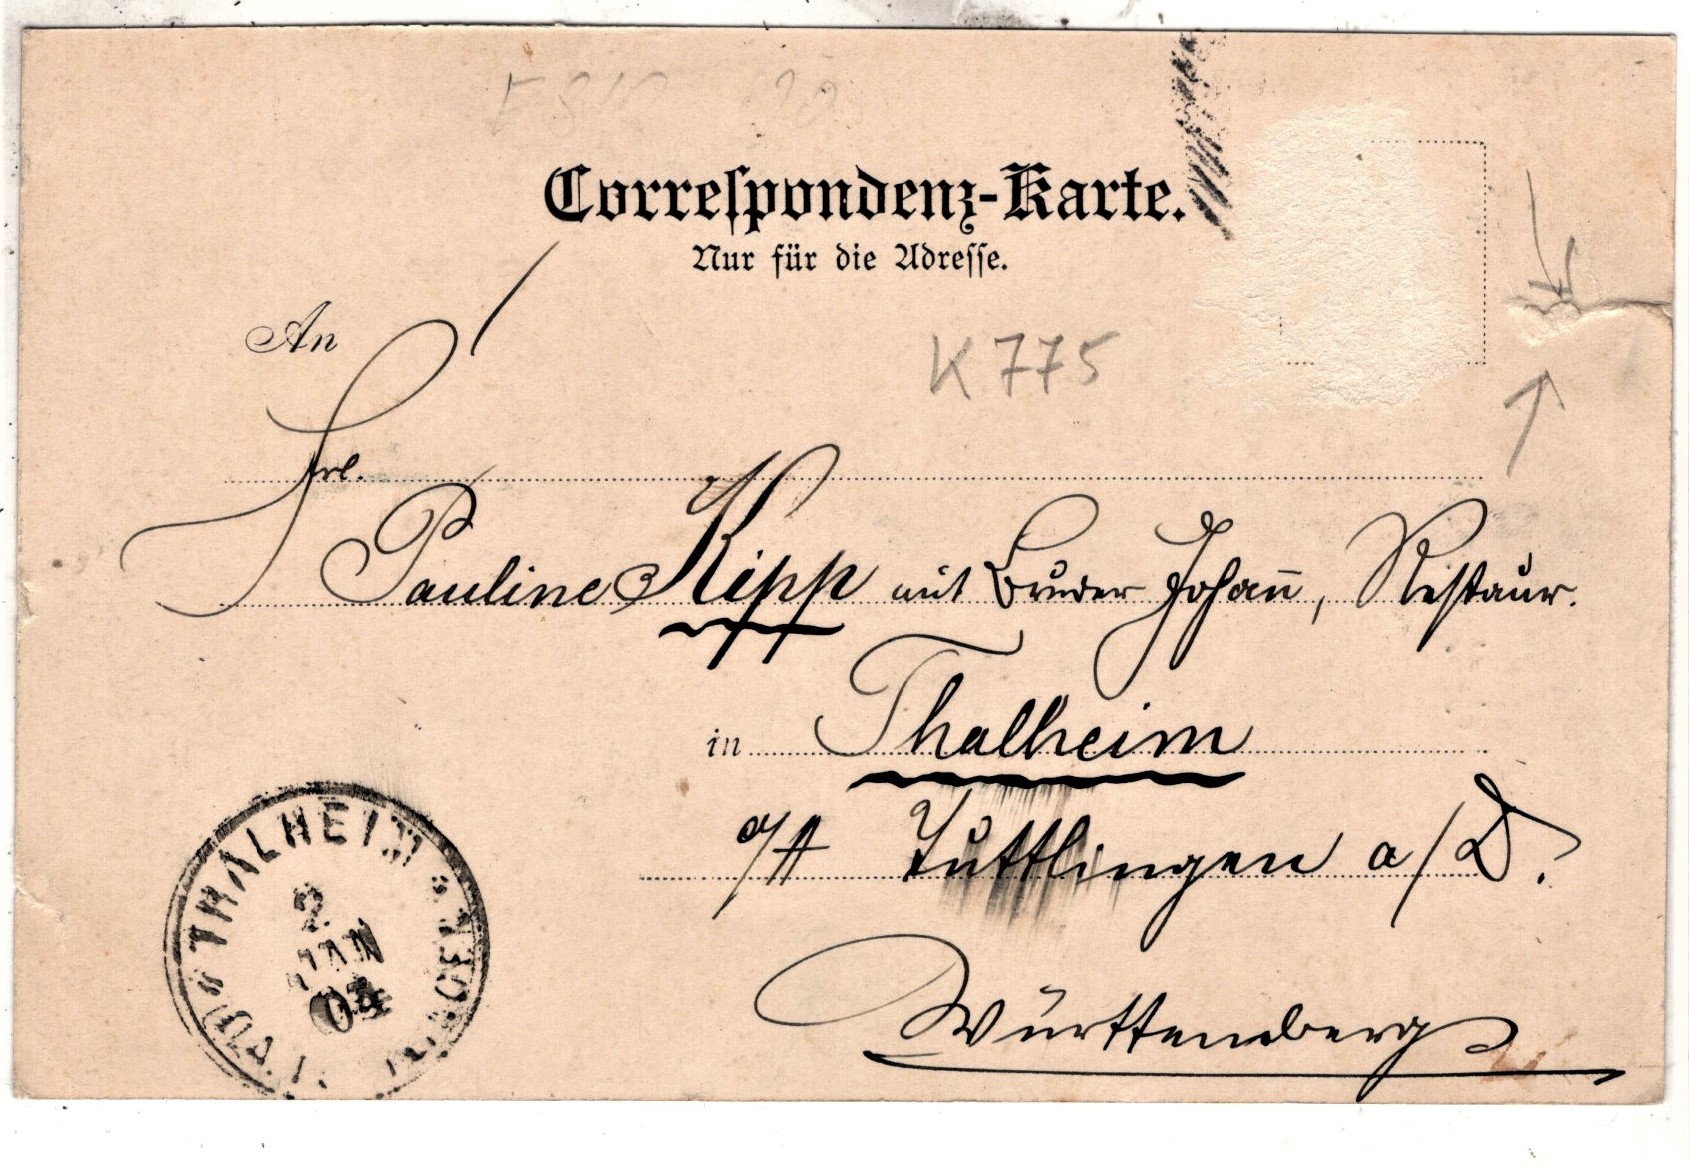 Correspondenz-Karte.
Nur für die Adresse.
An
K 775
Frl.
Pauline Kipp mit Bruder Johan̄, Restaur.
in Thalheim
Tuttlingen a/D.
Württemberg
THALHEIM
2
JAN
04